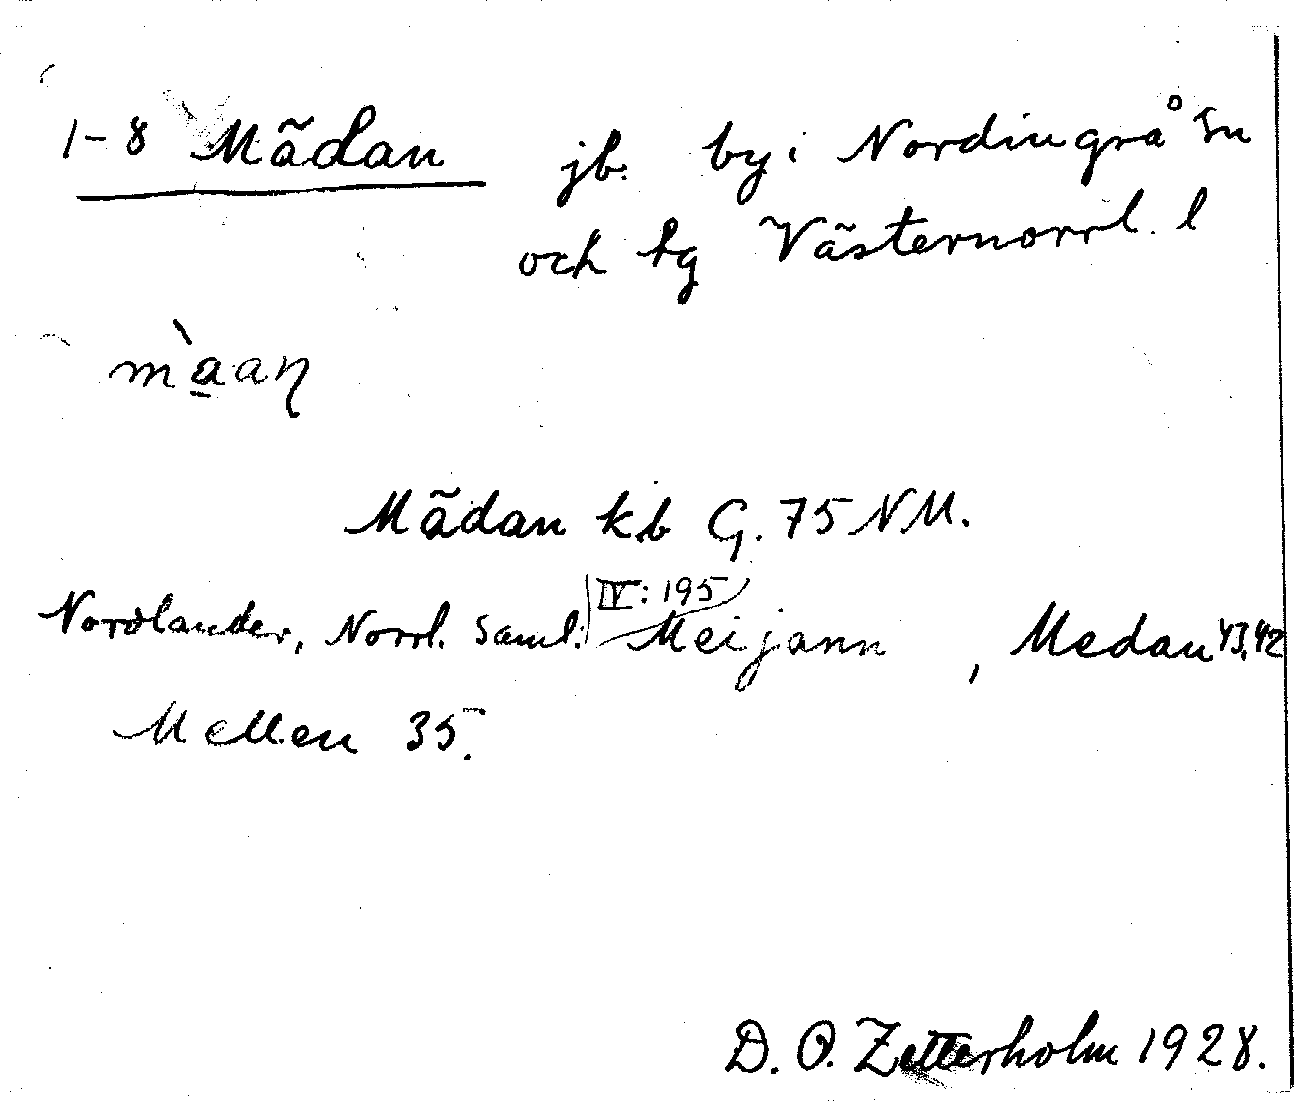 1-8 Mädan jb. by i Nordingrå sn
och hg Västernorrl. l
m̀a̲aŋ
Mädan kb G. 75 NM.
IV: 195
Nordlander, Norrl. Saml: Meijann, Medan 43,42
Mellen 35.
D. O. Zetterholm 1928.